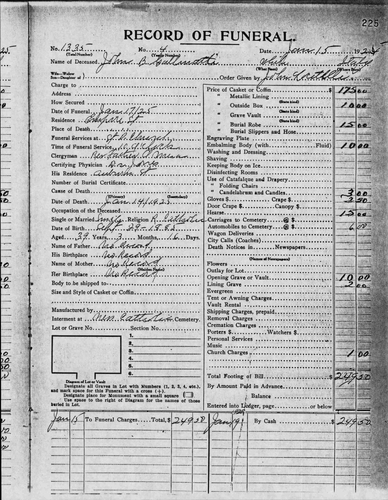 225
RECORD OF FUNERAL.
No. 1335
No. 4
Date Jan 15 1925
Name of Deceased John B
White
Order Given by John
Charge to
Address
How Secured
Date of Funeral Jan 17/25
Residence
Place of Death
Funeral Services at Church
Time of Funeral Service
Clergyman Rev.
Certifying Physician Dr.
His Residence Auburn St
Number of Burial Certificate
Cause of Death
Date of Death Jan 14 1925
Occupation of the Deceased
Single or Married Single Religion R. Catholic
Date of Birth Sept 29 1885
Aged 39 Years 3 Months 16 Days
Name of Father No Record
His Birthplace No Record
Name of Mother No Record
Her Birthplace No Record
Body to be shipped to
Size and Style of Casket or Coffin
Manufactured by
Interment at New Catholic Cemetery.
Lot or Grave No. Section No.
1
2
3
4
5
6
Diagram of Lot or Vault
Designate all Graves in Lot with Numbers (1, 2, 3, 4, etc.)
and mark space for this Funeral with a cross (+).
Designate place for Monument with a small square
Use space to the right of Diagram for the names of those
buried in Lot.
Price of Casket or Coffin $ 175 00
" Metallic Lining
" Outside Box 10 00
" Grave Vault
" Burial Robe 15 00
Burial Slippers and Hose
Engraving Plate
Embalming Body (with Fluid) 10 00
Washing and Dressing
Shaving
Keeping Body on Ice
Disinfecting Rooms
Use of Catafalque and Drapery
" Folding Chairs
" Candelabrum and Candles 3 00
Gloves $ Crape $ 2 50
Door Crape Candy $
Hearse 15 00
Carriages to Cemetery @ $
Automobiles to Cemetery @ $ 6 00
Wagon Deliveries
City Calls (Coaches)
Death Notices in Newspapers
Flowers
Outlay for Lot
Opening Grave or Vault 10 00
Lining Grave 2 00
Evergreen
Tent or Awning Charges
Vault Rental
Shipping Charges, prepaid
Removal Charges
Cremation Charges
Porters $ Watchers $
Personal Services
Music
Church Charges 1 00
Total Footing of Bill $ 249 50
By Amount Paid in Advance
Balance
Entered into Ledger, page or below.
Jan 15 To Funeral Charges, Total, $ 249 50
Jan 19 By Cash $ 249 50